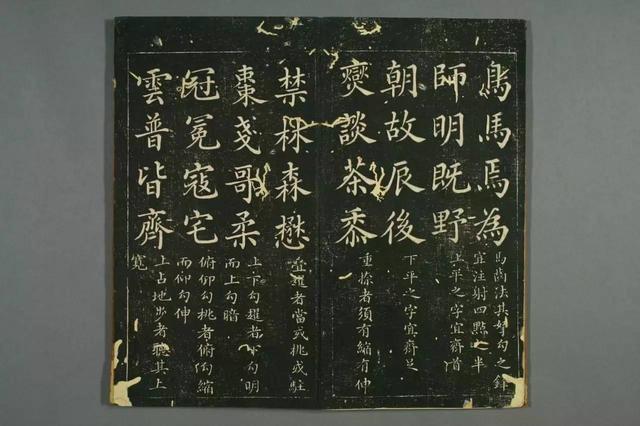 鳥馬焉為
馬齒法其努勾之鋒
宜注射四點之半
師明既野
上平之字宜齊首
朝故辰後
下平之字宜齊足
爕談茶黍
重捺者須有縮有伸
禁林森懋
宜趯者當或挑或駐
棗戔哥柔
上下勾趯者下勾明
而上勾暗
冠冕寇宅
俯仰勾挑者俯勾縮
而仰勾伸
雲普皆齊
上占地步者聽其上
寬